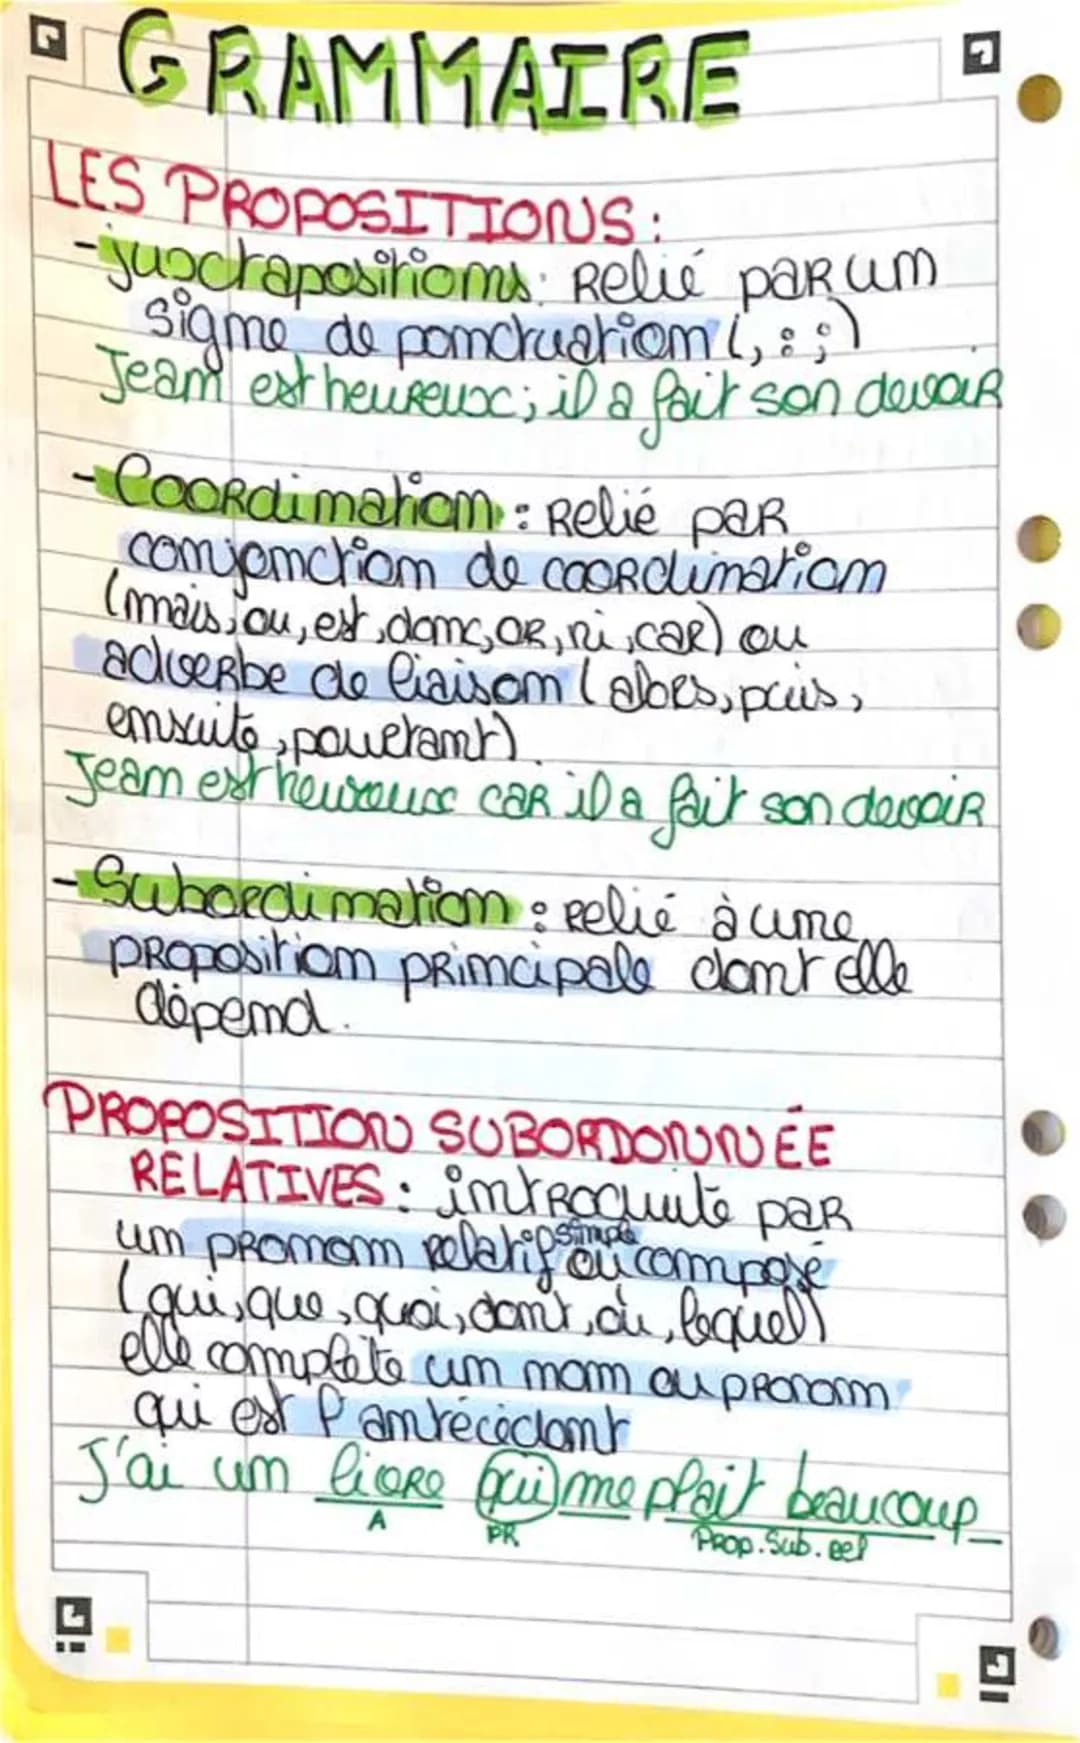 GRAMMAIRE
LES PROPOSITIONS :
- juxtapositions : Relié par un
signe de ponctuation (, : ;)
Jean est heureux ; il a fait son devoir
- Coordination : Relié par
conjonction de coordination
(mais, ou, est, donc, or, ni, car) ou
adverbe de liaison (alors, puis,
ensuite, pourtant).
Jean est heureux car il a fait son devoir
- Subordination : relié à une
proposition principale dont elle
dépend.
PROPOSITION SUBORDONNÉE
RELATIVES : introduite par
un pronom relatif simple ou composé
(qui, que, quoi, dont, où, lequel)
elle complète un nom ou pronom
qui est l'antécédant
J'ai un livre qui me plait beaucoup
A PR Prop. Sub. rel